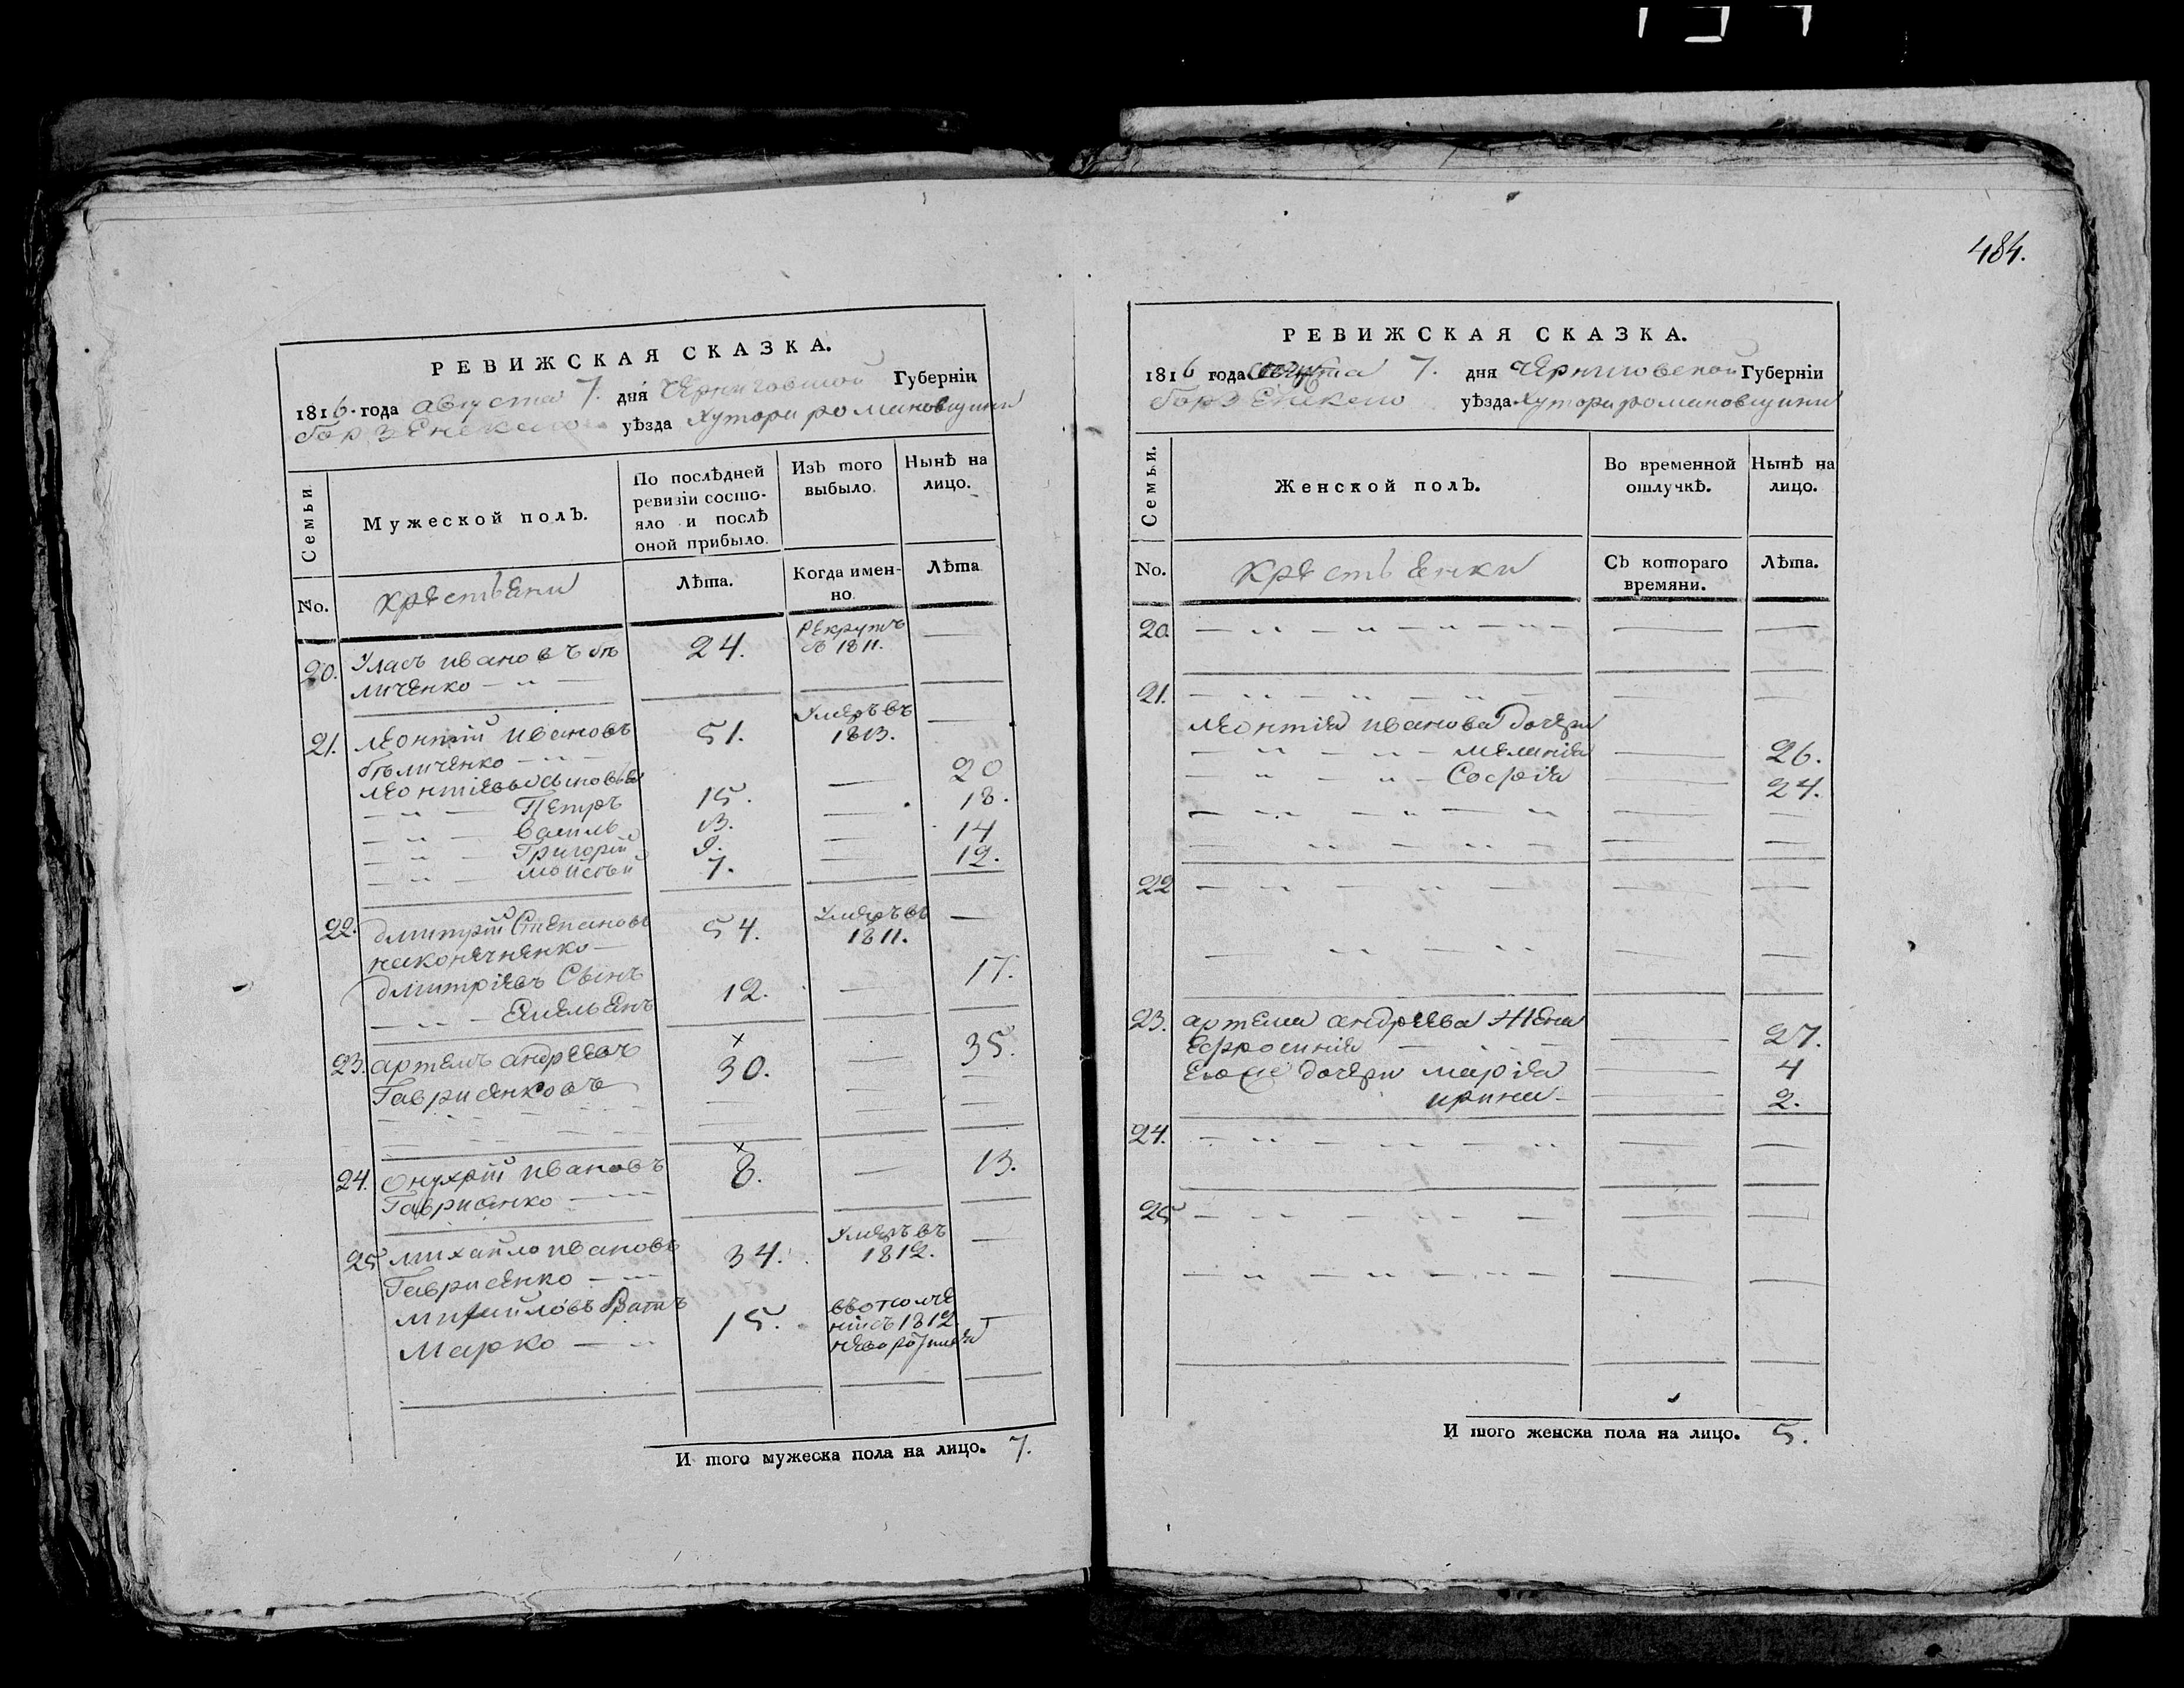 484.
РЕВИЖСКАЯ СКАЗКА.
1816 года августа 7. дня Черниговской Губерніи
борзенского уѣзда хутора романовщини
Семьи
Мужеской полъ.
По послѣдней ревизіи состояло и послѣ оной прибыло.
Изъ того выбыло.
Нынѣ на лицо.
No.
крестьяни
Лѣта.
Когда именно.
Лѣта
20. Уласъ ивановъ бѣ 24. рекрутъ в 1811. —
личенко — " —
21. леонтій ивановъ 51. Умеръ въ 1813. —
бѣличенко — " —
леонтіевы сыновья
— " — Петръ 15. — 20
— " — василь 13. — 18.
— " — Григорій 9. — 14
— " — мойсѣй 7. — 12.
22. дмитрій Степановъ 54. Умеръ въ 1811. —
наконечненко —
дмитріевъ Сынъ
— " — Емельянъ 12. — 17.
23. артемъ андреевъ × 30. — 35.
Гаврисенковъ
24. онуфрій ивановъ × 8. — 13.
Гаврисенко —
25 михайло ивановъ 34. Умеръ въ 1812. —
Гаврисенко —
михайловъ братъ
Марко — " 15. 1812 —
И того мужеска пола на лицо. 7.
РЕВИЖСКАЯ СКАЗКА.
1816 года августа 7. дня Черниговской Губерніи
борзенского уѣзда хутора романовщини
Семьи.
Женской полъ.
Во временной отлучкѣ.
Нынѣ на лицо.
No.
крестьянки
Съ котораго времяни.
Лѣта.
20. — " — " — " — " — — —
21. — " — " — " — — —
леонтія иванова дочери
— " — " — меланія — 26.
— " — " — Софія — 24.
22 — " — " — — —
23. артема андреева жена
Ефросинія — 27.
Ею же дочери марія — 4
ирина — 2.
24. — " — " — " — —
25 — " — — — — —
И того женска пола на лицо. 5.